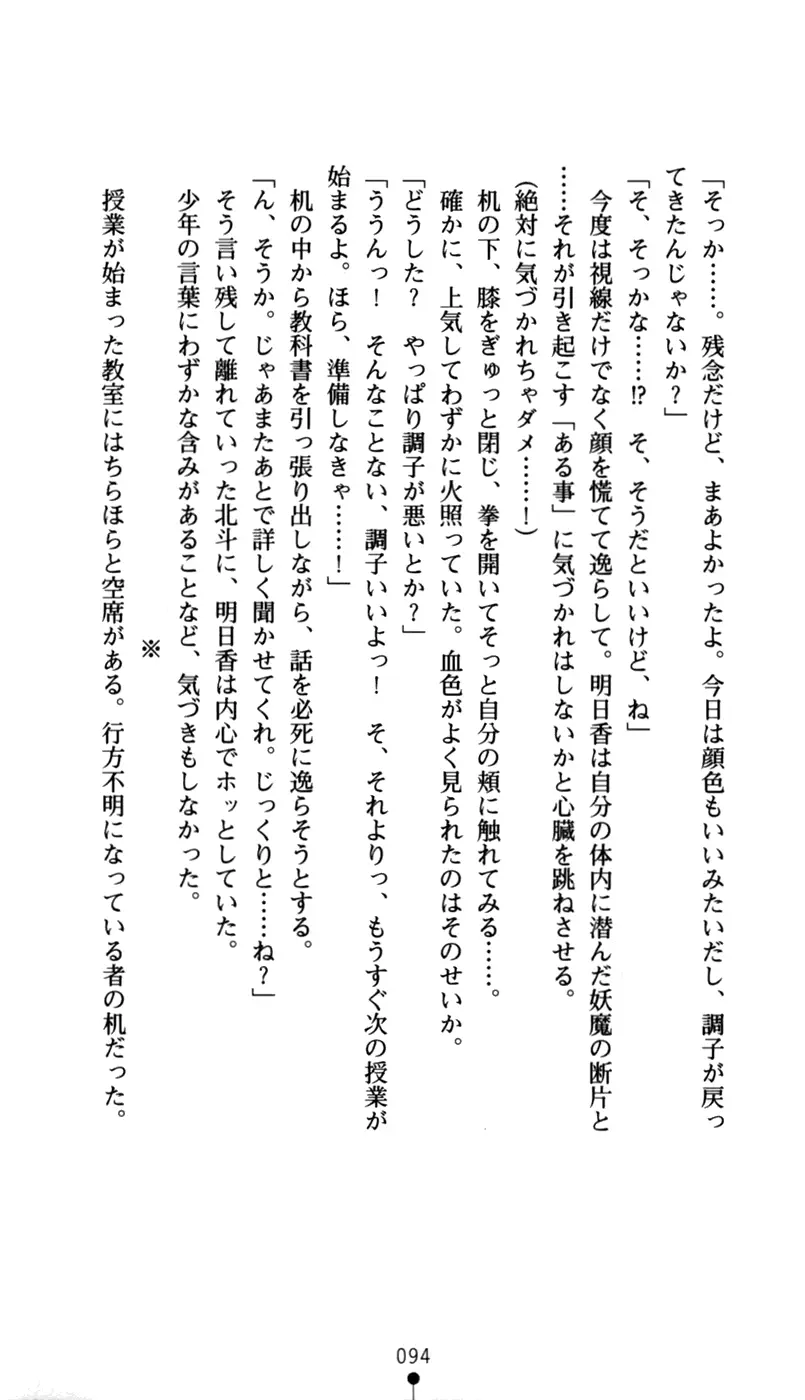 「そっか……。残念だけど、まあよかったよ。今日は顔色もいいみたいだし、調子が戻っ
てきたんじゃないか？」
「そ、そっかな……⁉　そ、そうだといいけど、ね」
　今度は視線だけでなく顔を慌てて逸らして。明日香は自分の体内に潜んだ妖魔の断片と
……それが引き起こす「ある事」に気づかれはしないかと心臓を跳ねさせる。
(絶対に気づかれちゃダメ……！)
　机の下、膝をぎゅっと閉じ、拳を開いてそっと自分の頬に触れてみる……。
　確かに、上気してわずかに火照っていた。血色がよく見られたのはそのせいか。
「どうした？　やっぱり調子が悪いとか？」
「ううんっ！　そんなことない、調子いいよっ！　そ、それよりっ、もうすぐ次の授業が
始まるよ。ほら、準備しなきゃ……！」
　机の中から教科書を引っ張り出しながら、話を必死に逸らそうとする。
「ん、そうか。じゃあまたあとで詳しく聞かせてくれ。じっくりと……ね？」
　そう言い残して離れていった北斗に、明日香は内心でホッとしていた。
　少年の言葉にわずかな含みがあることなど、気づきもしなかった。
※
　授業が始まった教室にはちらほらと空席がある。行方不明になっている者の机だった。
094